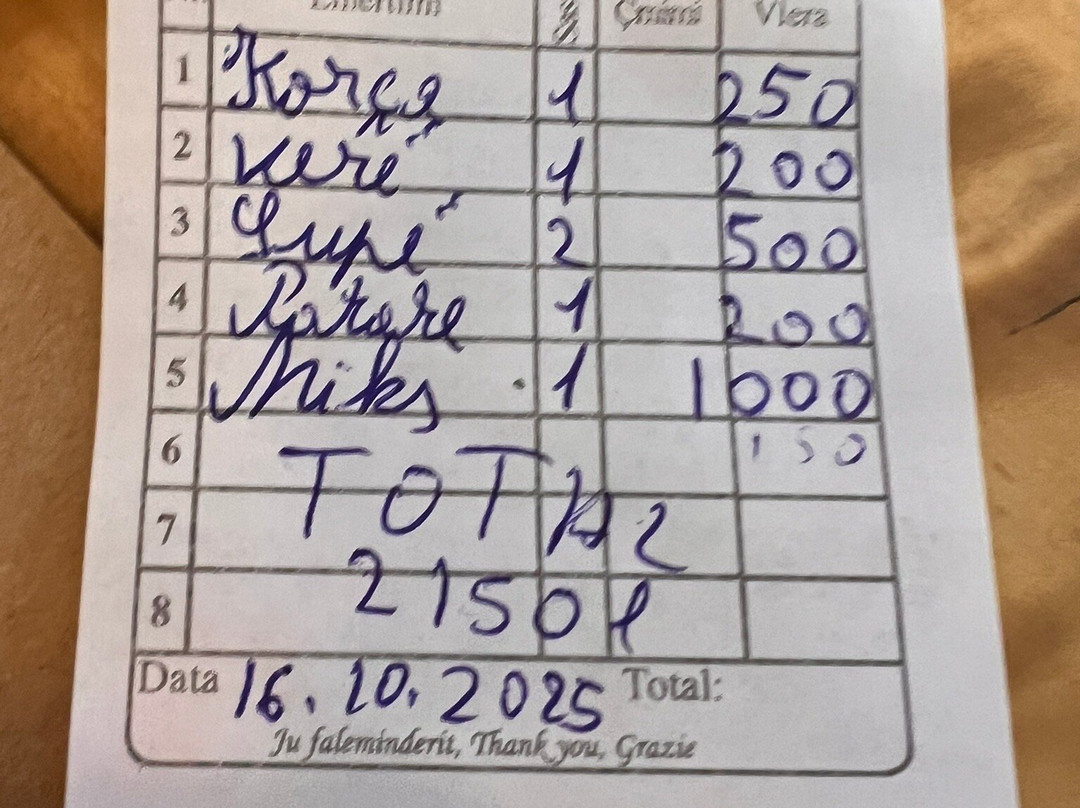 Emërtimi Çmimi Vlera
1 Korça 1 250
2 Verë 1 200
3 Supë 2 500
4 Patate 1 200
5 Miks 1 1000
6 150
7 TOTAL
8 2150 l
Data 16.10.2025 Total:
Ju faleminderit, Thank you, Grazie